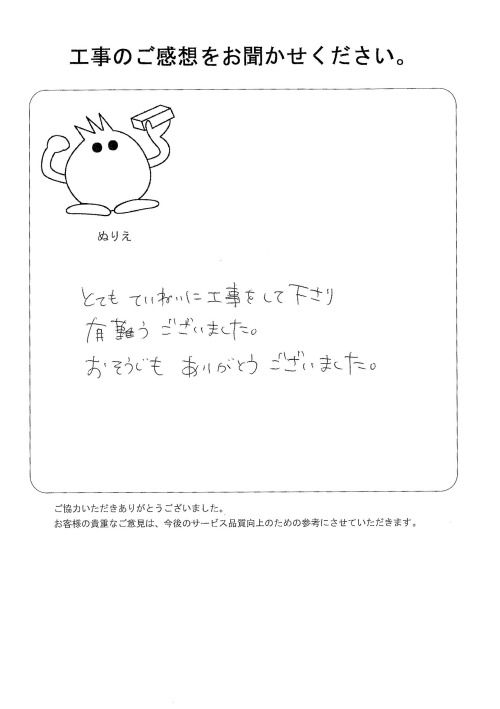 工事のご感想をお聞かせください。
ぬりえ
とても ていねいに工事をして下さり
有難う ございました。
おそうじも ありがとう ございました。
ご協力いただきありがとうございました。
お客様の貴重なご意見は、今後のサービス品質向上のための参考にさせていただきます。